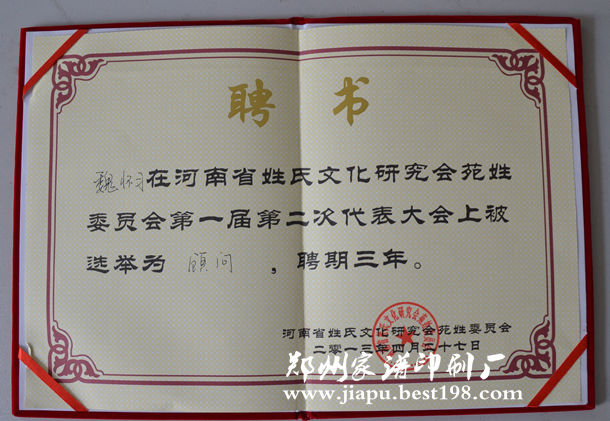 聘 书
魏怀习在河南省姓氏文化研究会苑姓
委员会第一届第二次代表大会上被
选举为 顾问 ，聘期三年。
河南省姓氏文化研究会苑姓委员会
二零一三年四月二十七日
郑州家谱印刷厂
www.jiapu.best198.com